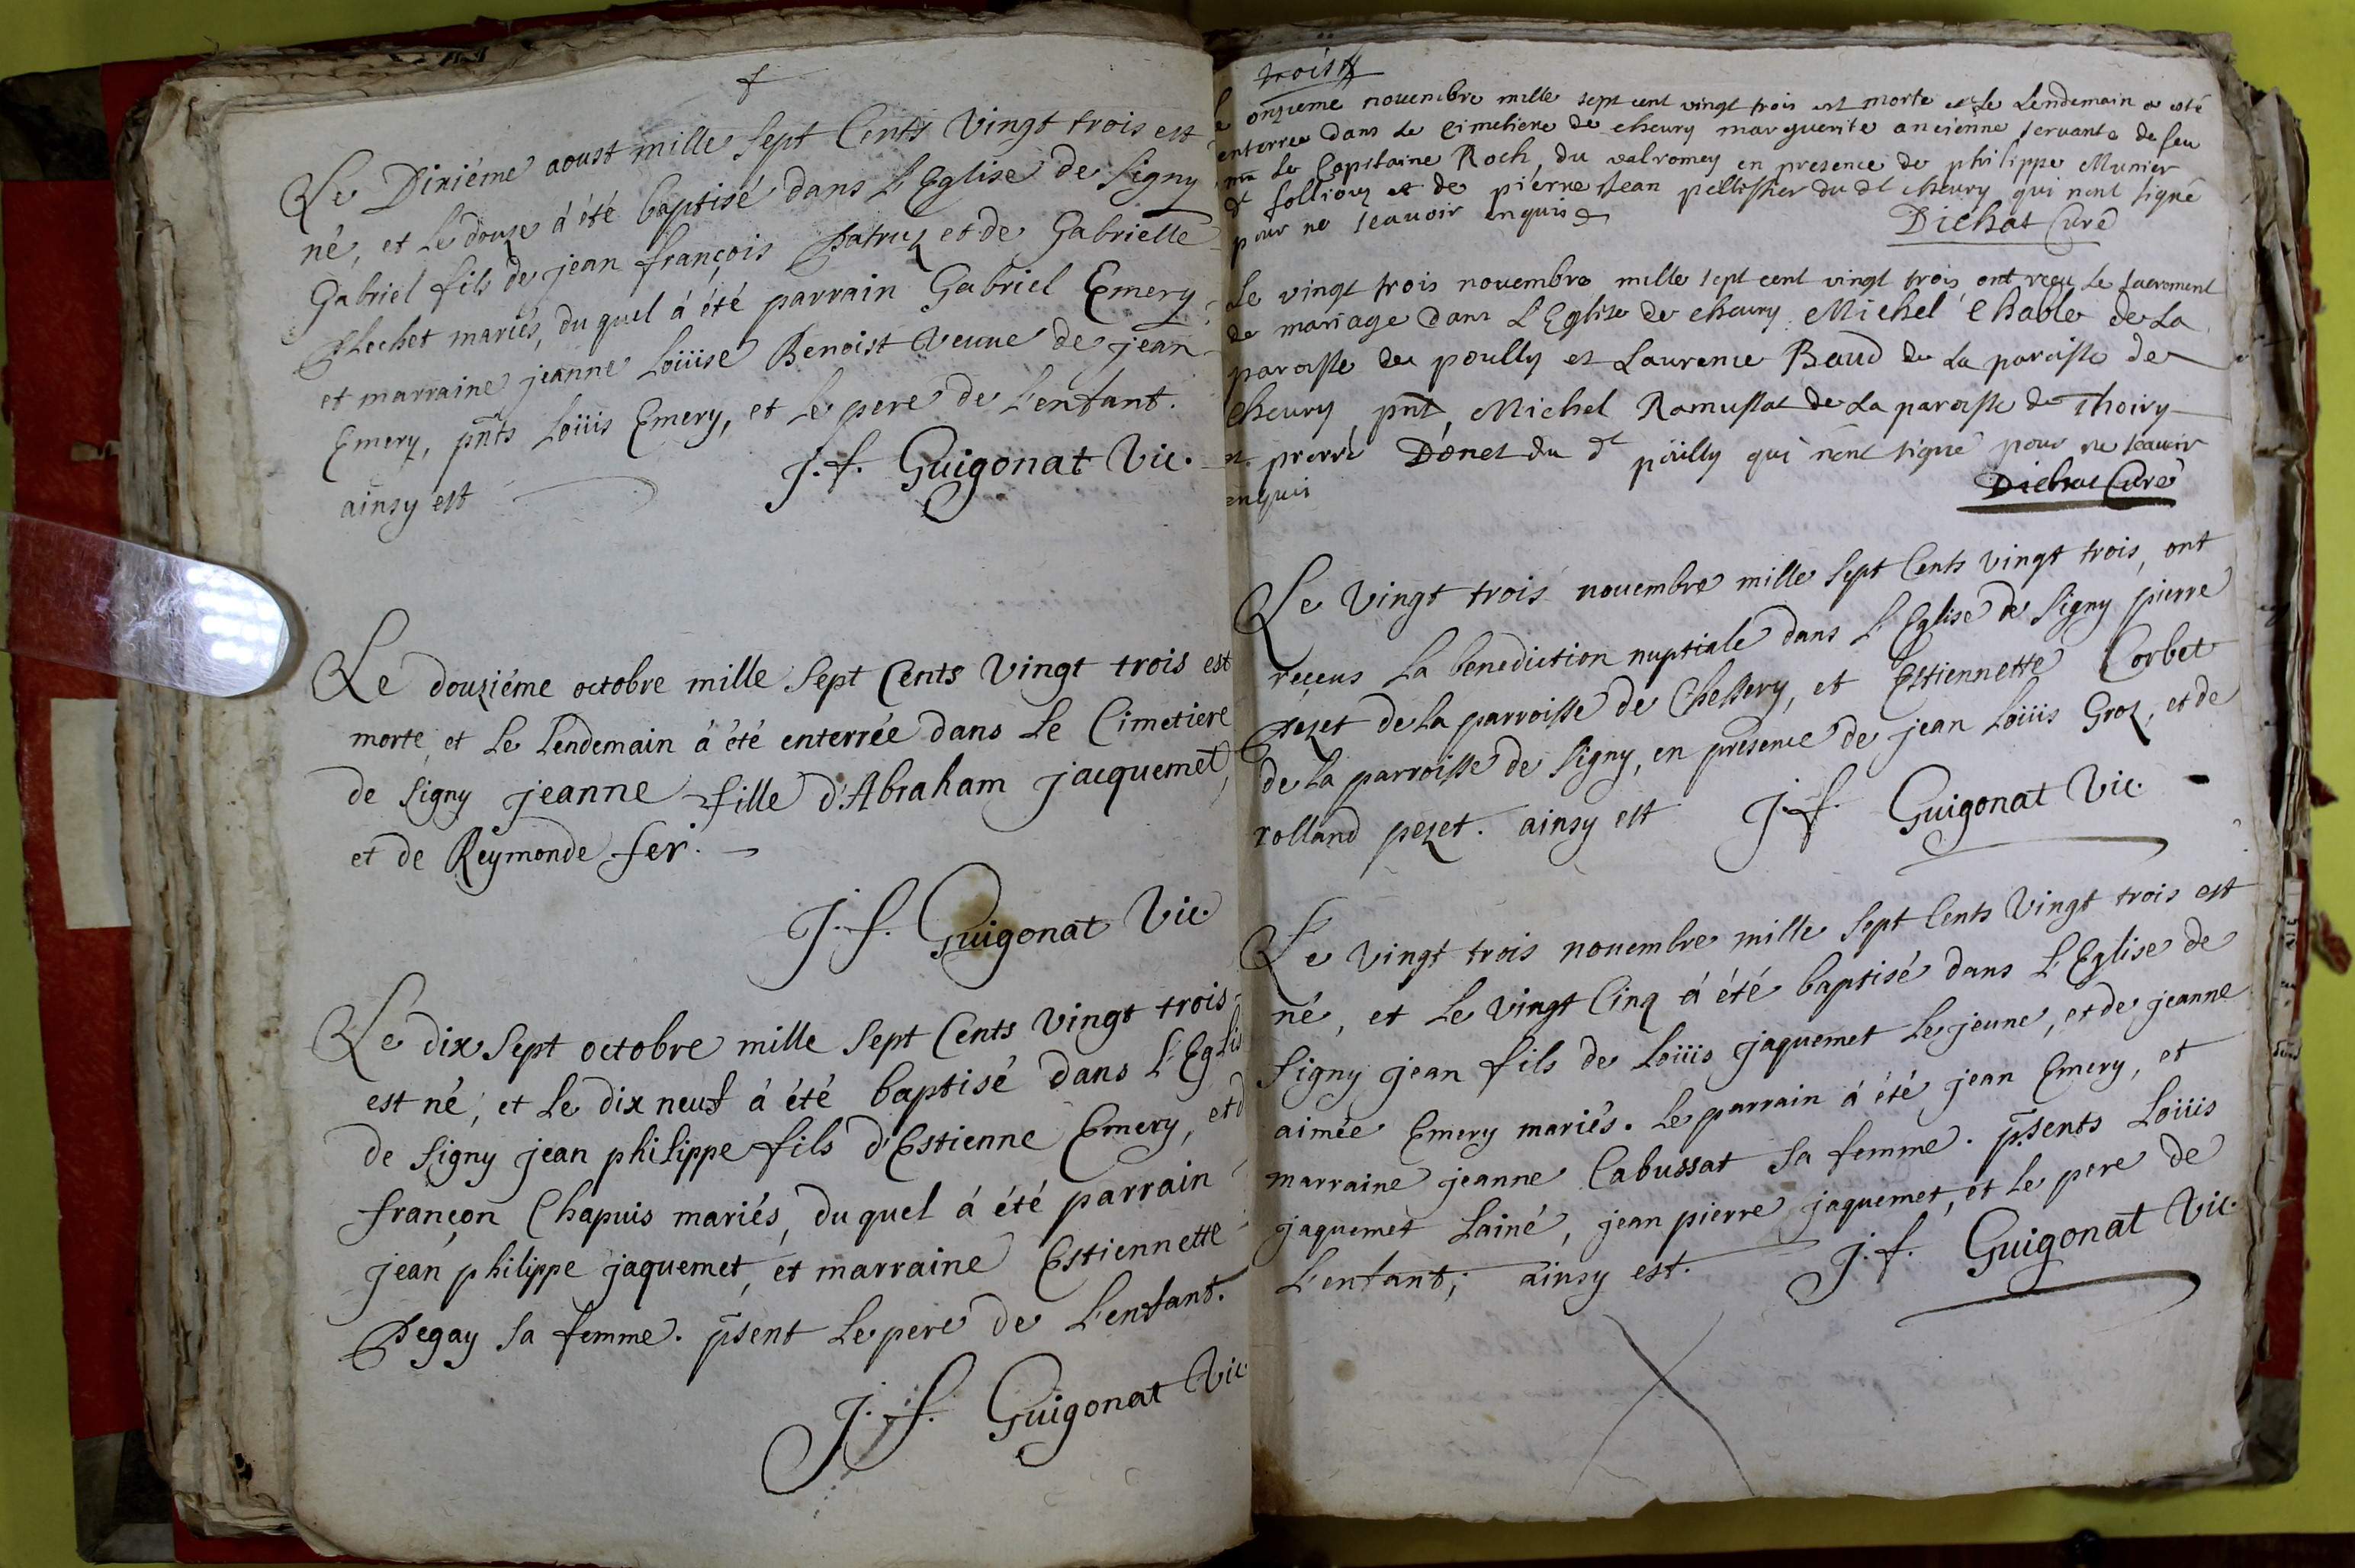 Le Dixiéme aoust mille sept Cents Vingt trois est
né, et Le douze à été baptisé dans L'Eglise de Signy
Gabriel fils de jean françois Patruz et de Gabrielle
Plechet mariés, du quel à été parrain Gabriel Emery
et marraine jeanne Loüise Benoist Veuue de jean
Emery, pnts Loüis Emery, et Le pere de L'enfant.
ainsy est J. f. Guigonat Vic.
Le douziéme octobre mille sept Cents Vingt trois est
morte, et Le Lendemain à été enterrée dans Le Cimetiere
de Signy jeanne fille d'Abraham jacquemet,
et de Reymonde fer.
J. f. Guigonat Vic
Le dix sept octobre mille sept Cents Vingt trois
est né, et Le dix neuf à été baptisé dans L'Eglis
de Signy jean philippe fils d'Estienne Emery, et d
françon Chapuis mariés, du quel à été parrain
jean philippe jaquemet, et marraine Estiennette
Pegay sa femme. psent Le pere de L'enfant.
J. f. Guigonat Vic
trois
onzieme nouembre mille sept cent vingt trois est morte et Le Lendemain a esté
enterree dans Le Cimetiere de cheury marguerite ancienne seruante de feu
mr Le Capitaine Roch, du valromey en presence de philippe Munier
de folliouz et de pierre Jean pellissier du dt cheury qui nont signé
pour ne scauoir enquis
Dichat Curé
Le vingt trois nouembre mille sept cent vingt trois ont reçu Le sacrement
de mariage dans L'Eglise de cheury Michel Chable de La
paroisse de poully et Laurence Baud de La paroisse de
Cheury, pnt, Michel Ramussat de La paroisse de Thoiry
et pierre Donet du dt poüilly qui nont signé pour ne scauoir
enquis
Dichat Curé
Le Vingt trois nouembre mille sept Cents vingt trois, ont
reçeus La benediction nuptiale dans L'Eglise de Signy pierre
Pezet de La parroisse de Chessery, et Estiennette Corbet
de La parroisse de Signy, en presence de jean Loüis Groz, et de
rolland pezet. ainsy est J. f. Guigonat Vic.
Le Vingt trois nouembre mille sept Cents Vingt trois est
né, et Le Vingt Cinq à été baptisé dans L'Eglise de
Signy jean fils de Loüis jaquemet Le jeune, et de jeanne
aimée Emery mariés. Le parrain à été jean Emery, et
marraine jeanne Cabussat sa femme. psents Loüis
jaquemet Lainé, jean pierre jaquemet, et Le pere de
L'enfant; ainsy est. J. f. Guigonat Vic.